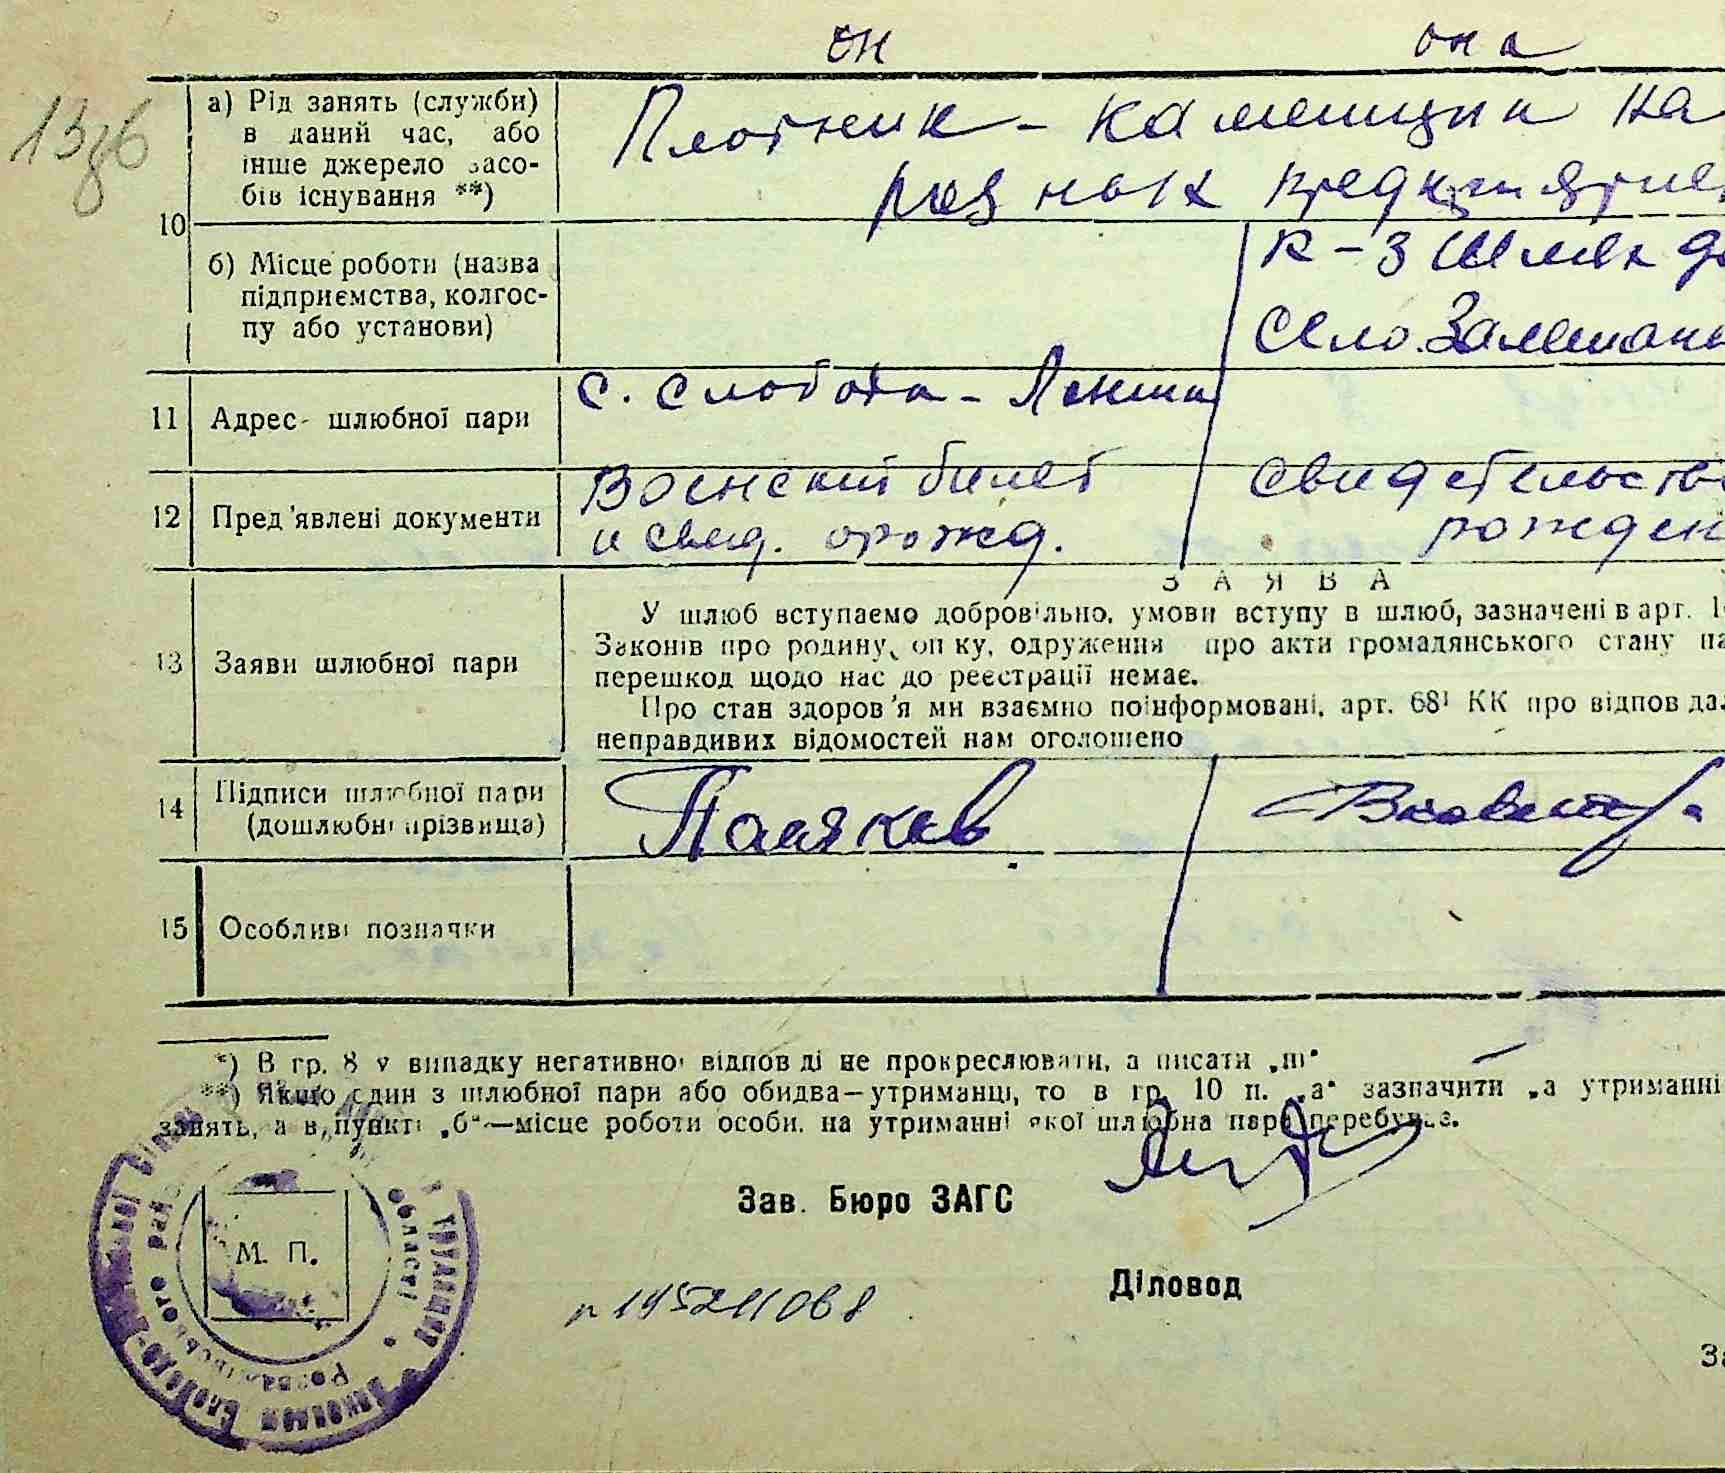 он она
13зв
а) Рід занять (служби)
в даний час, або
інше джерело засо-
бів існування **)
Плотник - каменщик на
разных предприятиях
10
б) Місце роботи (назва
підприємства, колгос-
пу або установи)
к-з Шлях до
село.
11 Адрес шлюбної пари
с. Слобода -
12 Пред'явлені документи
Военский билет
и свид. о рожд.
Свидетельство
рожден
ЗАЯВА
13 Заяви шлюбної пари
У шлюб вступаємо добровільно, умови вступу в шлюб, зазначені в арт. 1
Законів про родину, опіку, одруження про акти громадянського стану на
перешкод щодо нас до реєстрації немає.
Про стан здоров'я ми взаємно поінформовані, арт. 68¹ КК про відповідал
неправдивих відомостей нам оголошено
14 Підписи шлюбної пари
(дошлюбні прізвища)
Поляков
15 Особливі позначки
*) В гр. 8 у випадку негативної відповіді не прокреслювати, а писати „ні“
**) Якщо один з шлюбної пари або обидва—утриманці, то в гр. 10 п. „а“ зазначити „а утриманні
занять, а в пункті „б“—місце роботи особи, на утриманні якої шлюбна пара перебуває.
Зав. Бюро ЗАГС
М. П.
Діловод
За